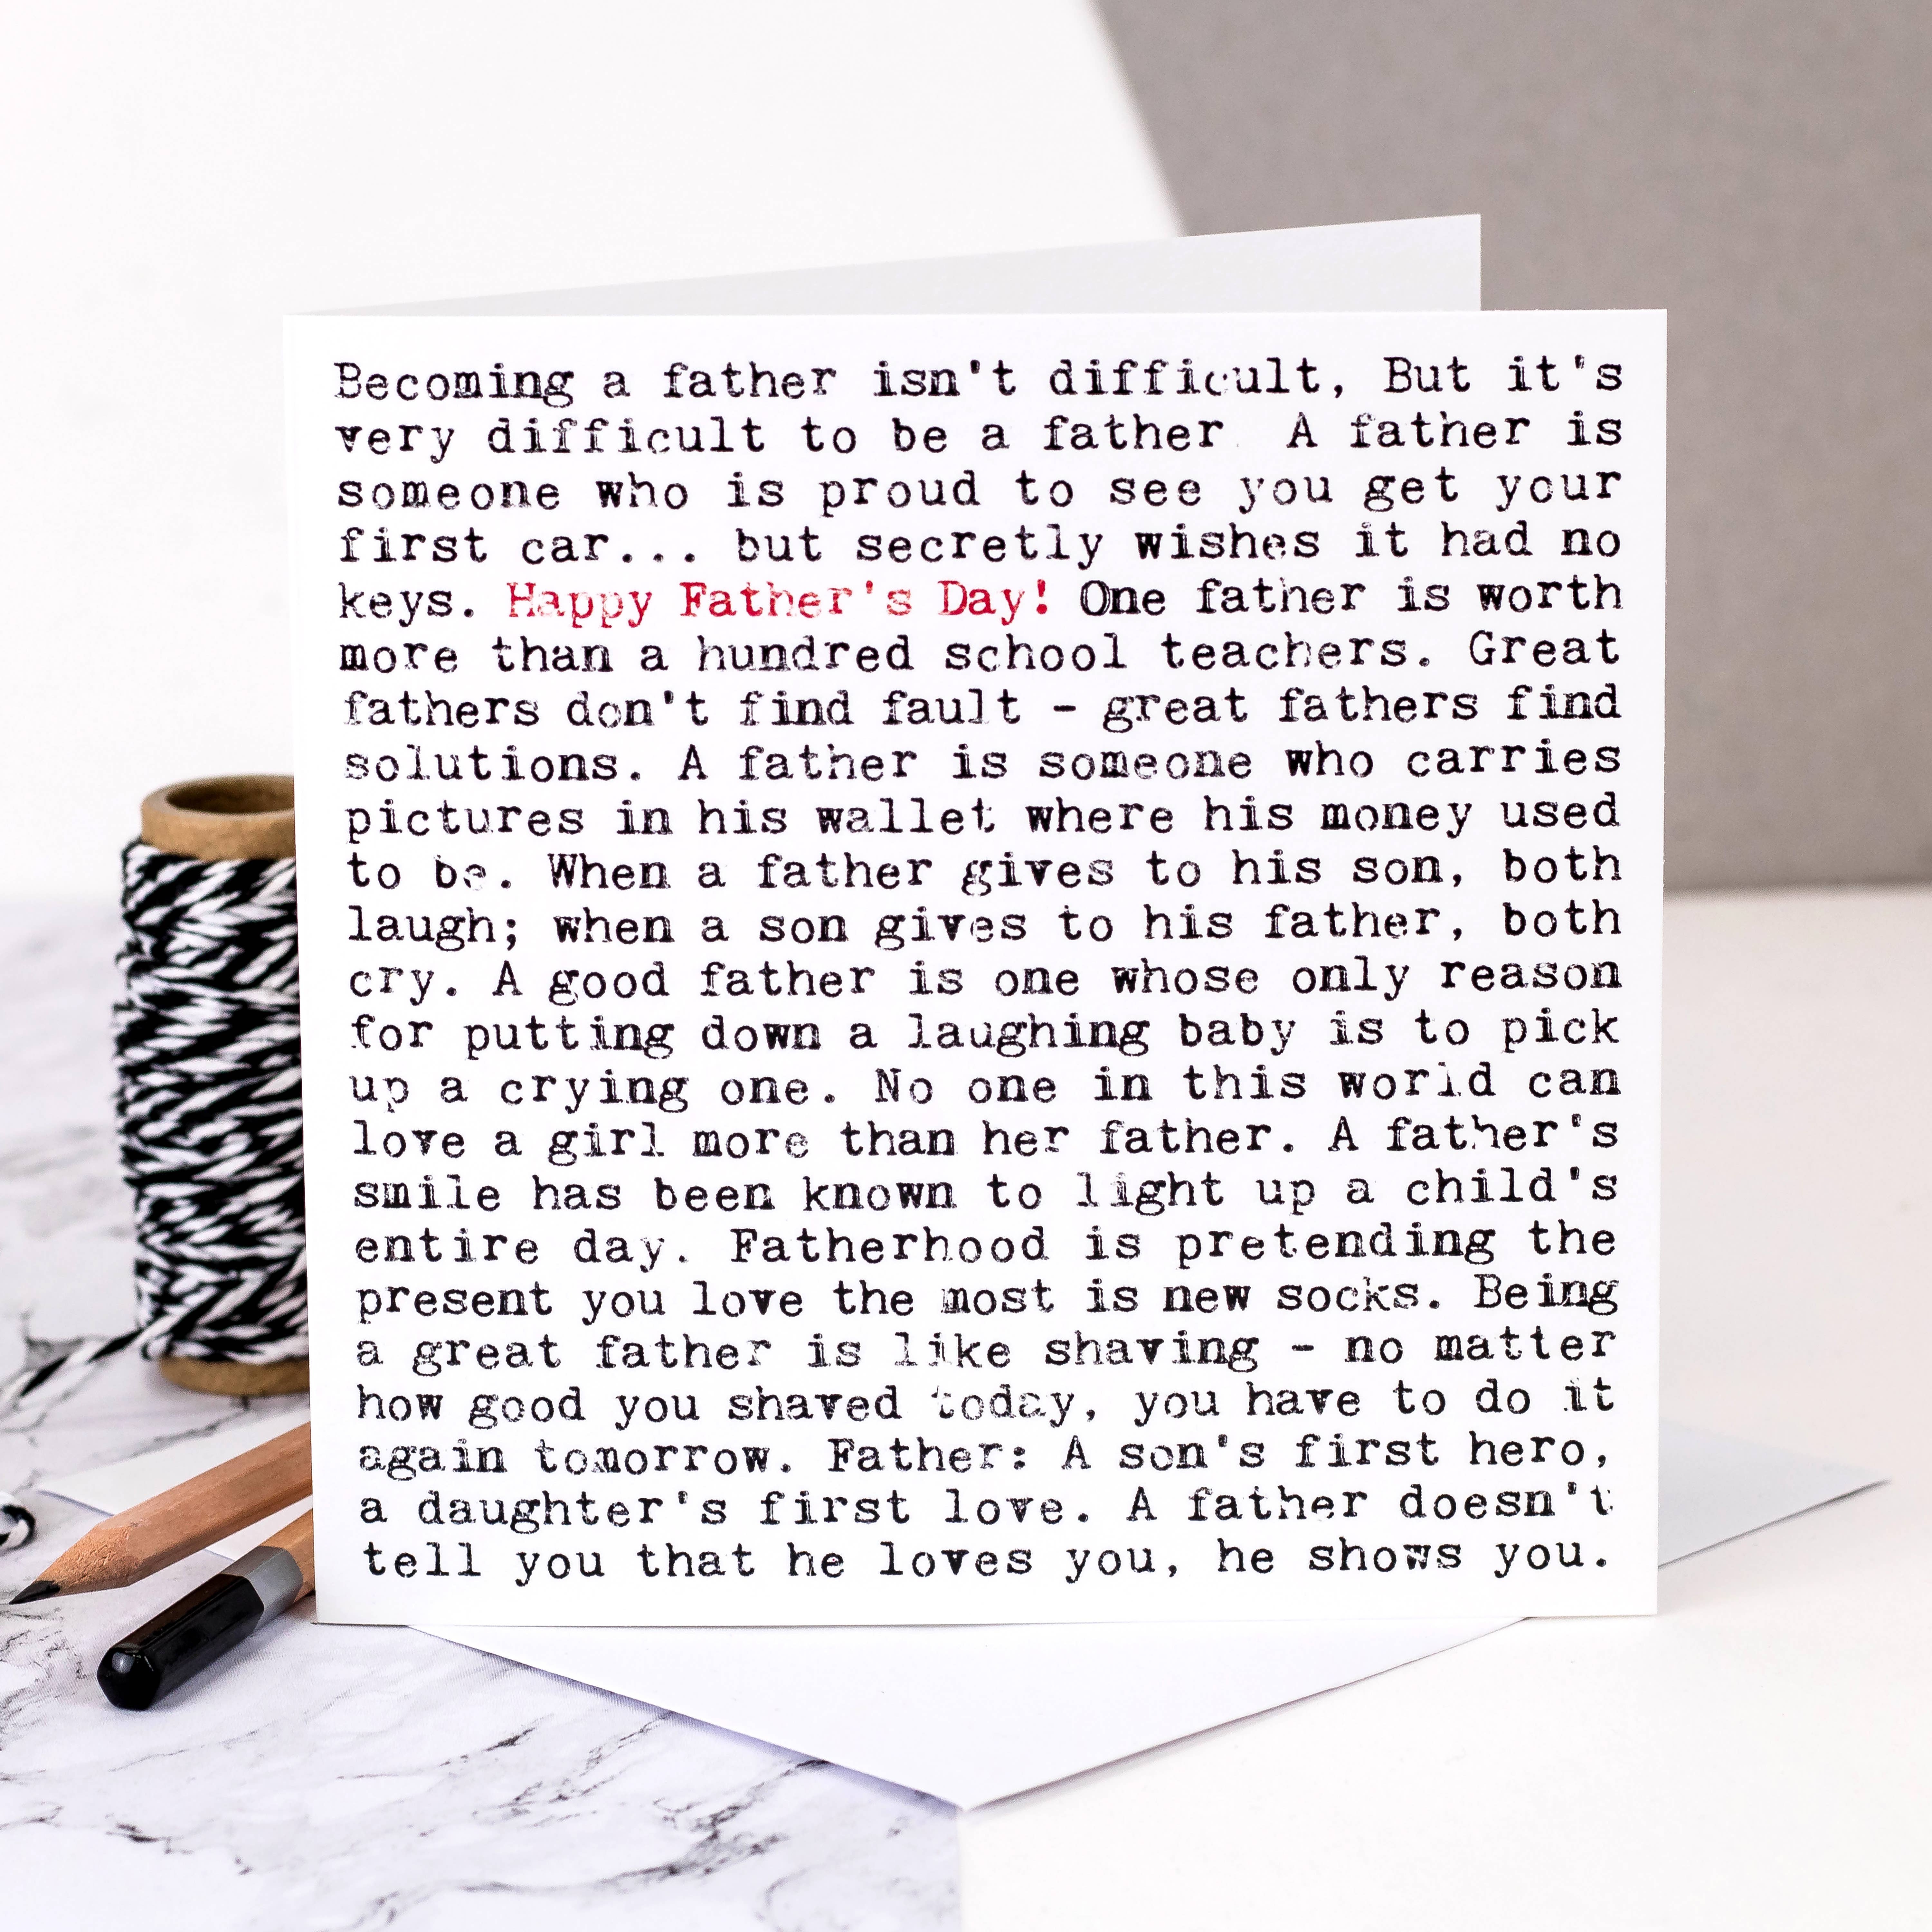 Becoming a father isn't difficult, But it's
very difficult to be a father. A father is
someone who is proud to see you get your
first car... but secretly wishes it had no
keys. Happy Father's Day! One father is worth
more than a hundred school teachers. Great
fathers don't find fault - great fathers find
solutions. A father is someone who carries
pictures in his wallet where his money used
to be. When a father gives to his son, both
laugh; when a son gives to his father, both
cry. A good father is one whose only reason
for putting down a laughing baby is to pick
up a crying one. No one in this world can
love a girl more than her father. A father's
smile has been known to light up a child's
entire day. Fatherhood is pretending the
present you love the most is new socks. Being
a great father is like shaving - no matter
how good you shaved today, you have to do it
again tomorrow. Father: A son's first hero,
a daughter's first love. A father doesn't
tell you that he loves you, he shows you.